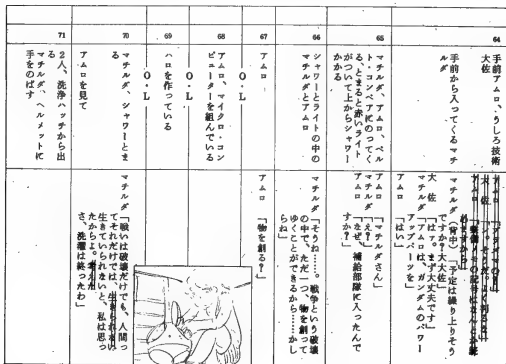 64
手前アムロ、うしろ技術
大佐
手前から入ってくるマチ
ルダ
マチルダ(背中)「予定は繰り上りそう
ですか?大大佐」
大佐「はァ。まず大丈夫です」
マチルダ「アムロは、ガンダムのパワー
アップパーツを」
アムロ「はい」
65
マチルダ、アムロ、ベル
ト・コンベアにのってく
る、とまると赤いライト
がついて上からシャワー
かかる
アムロ「マチルダさん」
マチルダ「え?」
アムロ「なぜ、補給部隊に入ったんで
すか?」
66
シャワーとライトの中の
マチルダとアムロ
マチルダ「そうね……。戦争という破壊
の中で、ただ一つ、物を創って
ゆくことができるから……かし
らね」
67
アムロ
アムロ「物を創る?」
O・L
68
アムロ、マイクロ・コン
ピューターを組んでいる
O・L
69
ハロを作っている
O・L
70
マチルダ、シャワーとま
る
アムロを見て
マチルダ「戦いは破壊だけでも、人間っ
てそれだけでは、
生きていられないと、私は思っ
たからよ。
さ、洗濯は終ったわ」
71
2人、洗浄ハッチから出
る
マチルダ、ヘルメットに
手をのばす